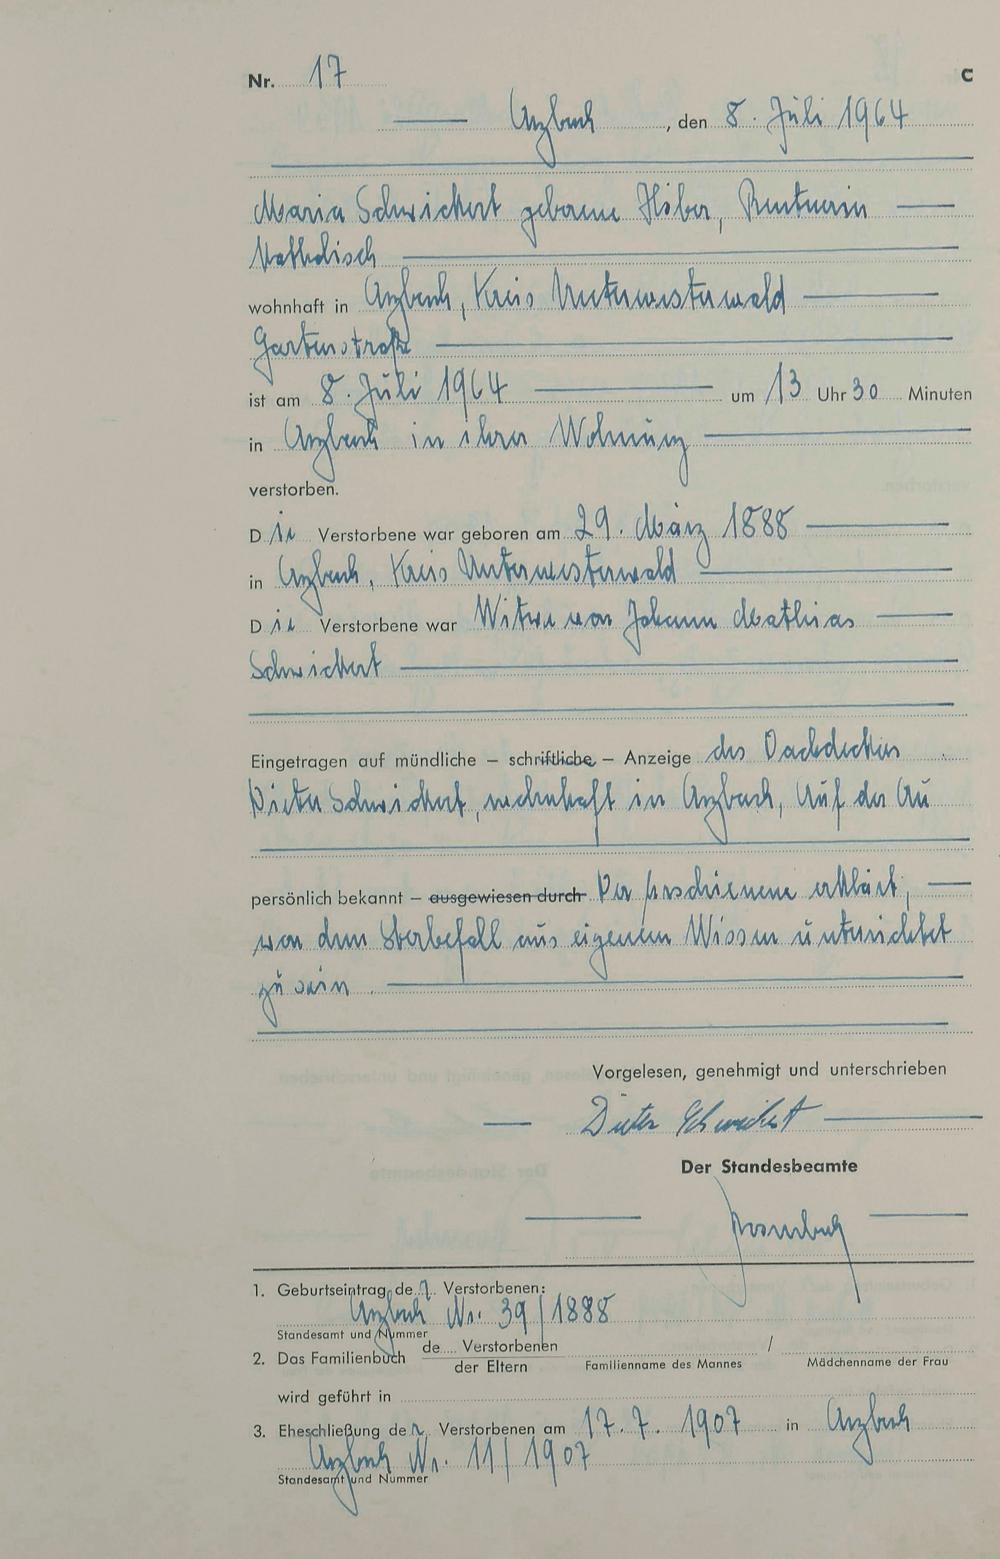 Nr. 17 C
Arzbach, den 8. Juli 1964
Maria Schwickert geborene Höber, Rentnerin
Katholisch
wohnhaft in Arzbach, Kreis Unterwesterwald
Gartenstraße
ist am 8. Juli 1964 um 13 Uhr 30 Minuten
in Arzbach in ihrer Wohnung
verstorben.
Die Verstorbene war geboren am 29. März 1888
in Arzbach, Kreis Unterwesterwald
Die Verstorbene war Witwe von Johann Mathias
Schwickert
Eingetragen auf mündliche – schriftliche – Anzeige des Dachdeckers
Dieter Schwickert, wohnhaft in Arzbach, Auf der Au
persönlich bekannt – ausgewiesen durch Der Erschienene erklärt,
von dem Sterbefall aus eigenem Wissen unterrichtet
zu sein.
Vorgelesen, genehmigt und unterschrieben
Dieter Schwickert
Der Standesbeamte
1. Geburtseintrag der Verstorbenen:
Arzbach Nr. 39/1888
Standesamt und Nummer
2. Das Familienbuch de.... Verstorbenen / der Eltern /
Familienname des Mannes Mädchenname der Frau
wird geführt in
3. Eheschließung der Verstorbenen am 17.7.1907 in Arzbach
Arzbach Nr. 11/1907
Standesamt und Nummer